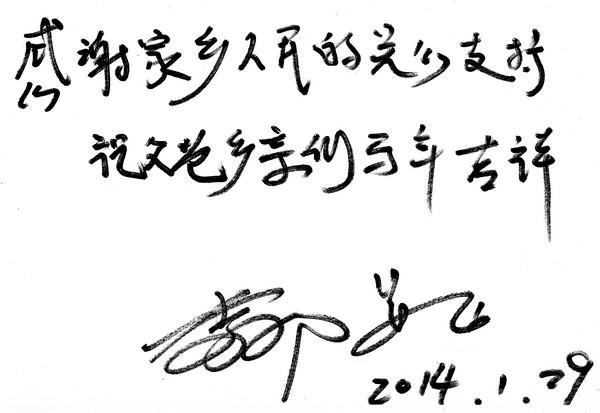 感谢家乡人民的关心支持
祝文苍乡亲们马年吉祥
2014.1.29